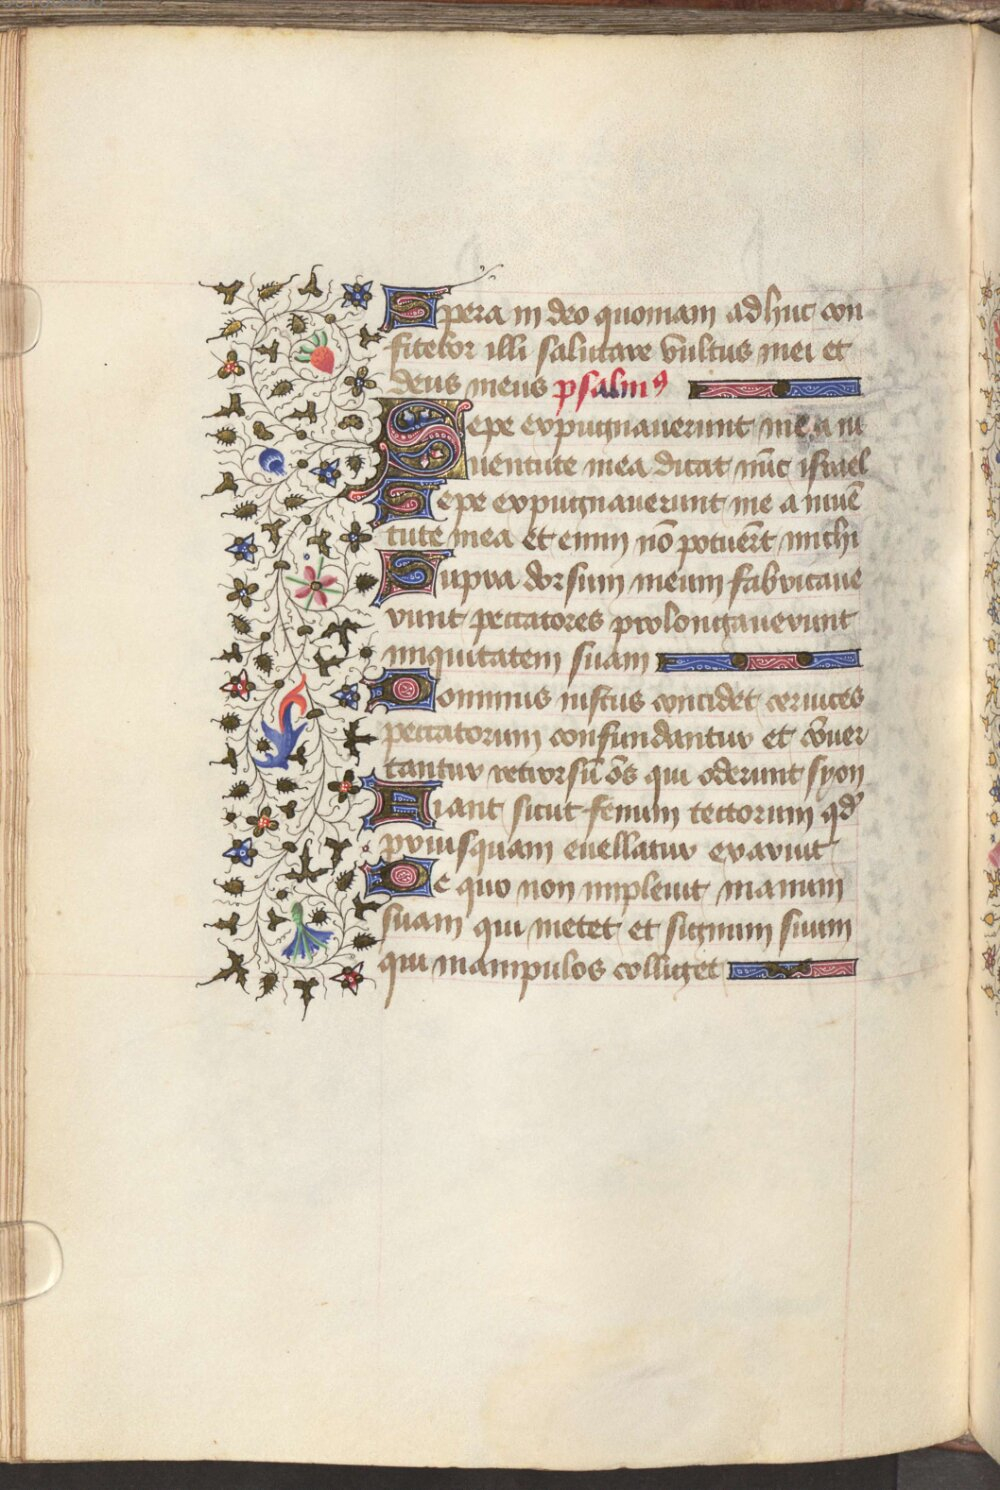 Spera in deo quoniam adhuc con
fitebor illi salutare vultus mei et
deus meus psalmꝰ
Sepe expugnauerunt me a iu
uentute mea dicat nūc israel
Sepe expugnauerunt me a iuuē
tute mea et enim nō potuerūt michi
Supra dorsum meum fabricaue
runt peccatores prolongauerunt
iniquitatem suam
Dominus iustus concidet ceruices
peccatorum confundantur et cōuer
tantur retrorsū oēs qui oderunt syon
Fiant sicut fenum tectorum qd̓
priusquam euellatur exaruit
De quo non impleuit manum
suam qui metet et signum suum
qui manipulos colliget